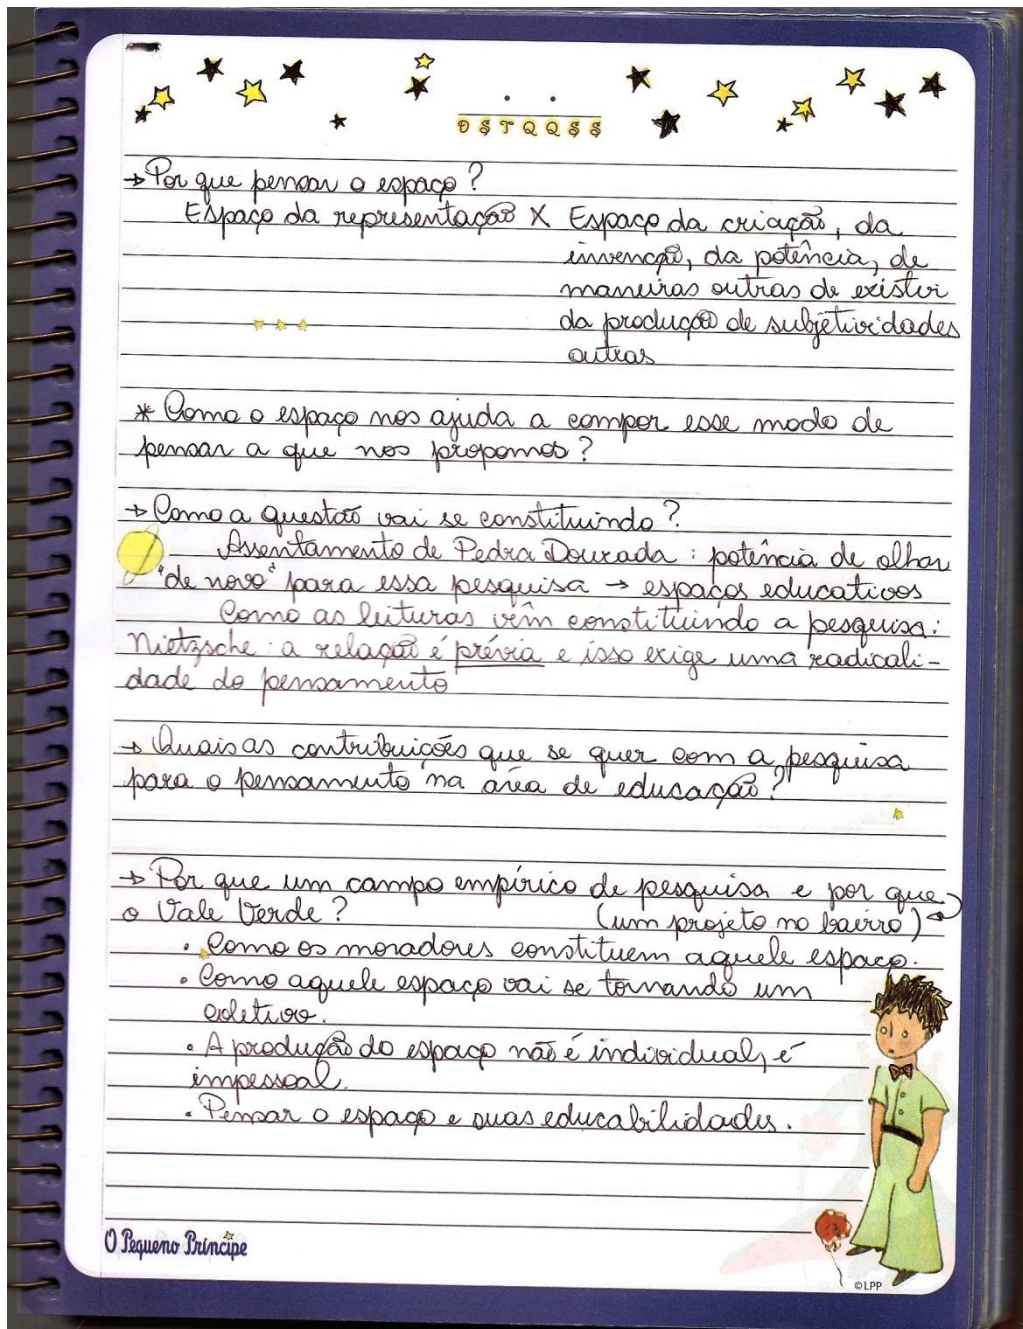 D S T Q Q S S
→ Por que pensar o espaço?
Espaço da representação X Espaço da criação, da
invenção, da potência, de
maneiras outras de existir
da produção de subjetividades
outras
* Como o espaço nos ajuda a compor esse modo de
pensar a que nos propomos?
→ Como a questão vai se constituindo?
Assentamento de Pedra Dourada: potência de olhar
"de novo" para essa pesquisa → espaços educativos
Como as leituras vêm constituindo a pesquisa:
Nietzsche: a relação é prévia e isso exige uma radicali-
dade do pensamento
→ Quais as contribuições que se quer com a pesquisa
para o pensamento na área de educação?
→ Por que um campo empírico de pesquisa e por que
o Vale Verde? (um projeto no bairro)
• Como os moradores constituem aquele espaço.
• Como aquele espaço vai se tornando um
coletivo.
• A produção do espaço não é individual, é
impessoal.
• Pensar o espaço e suas educabilidades.
O Pequeno Príncipe
©LPP